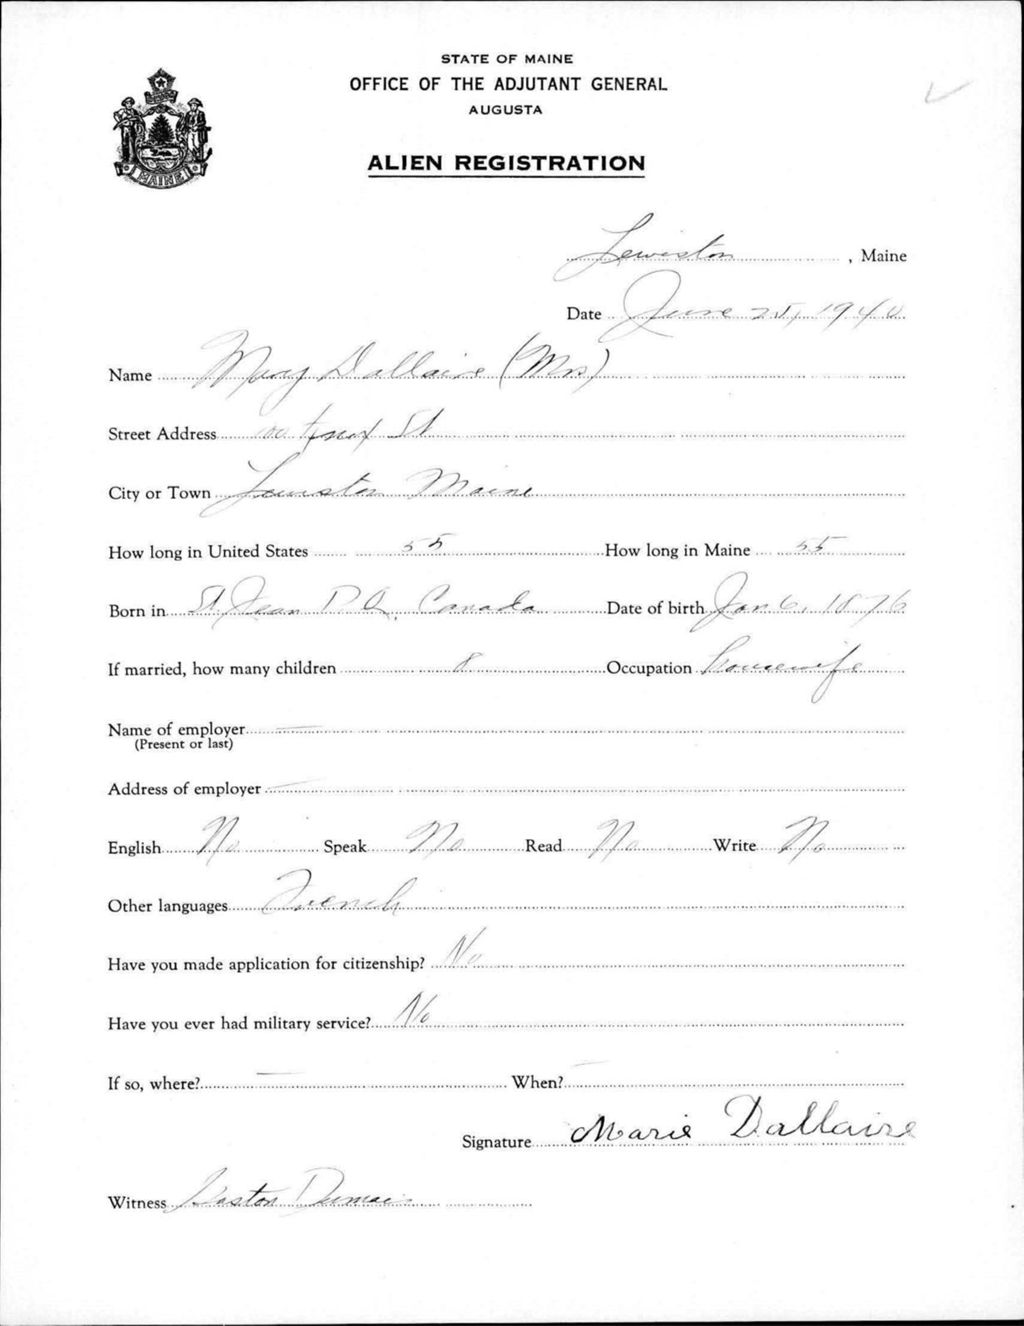 STATE OF MAINE
OFFICE OF THE ADJUTANT GENERAL
AUGUSTA
ALIEN REGISTRATION
MAINE
Lewiston, Maine
Date June 25, 1940
Name Mary Dallaire (Mrs)
Street Address Knox St
City or Town Lewiston Maine
How long in United States 55 How long in Maine 55
Born in St Jean P.Q. Canada Date of birth Jan 6, 1876
If married, how many children 8 Occupation housewife
Name of employer —
(Present or last)
Address of employer —
English No Speak No Read No Write No
Other languages French
Have you made application for citizenship? No
Have you ever had military service? No
If so, where? — When? —
Signature Marie Dallaire
Witness Gaston Dumais